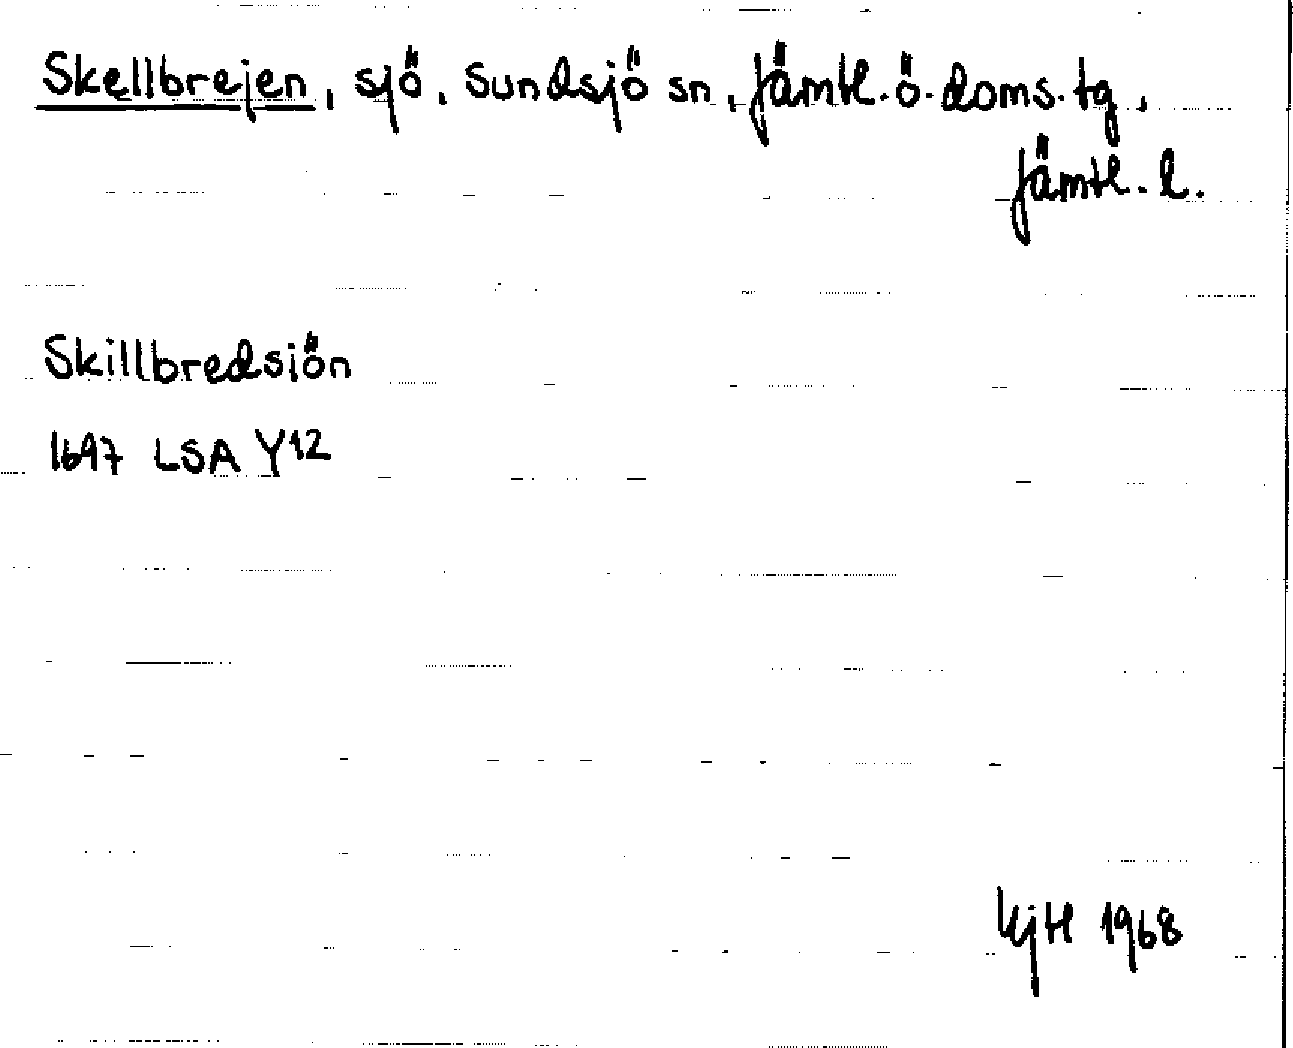 Skellbrejen, sjö, Sundsjö sn, Jämtl. ö. doms. tg,
Jämtl. l.
Skillbredsiön
1697 LSA Y12
KjH 1968